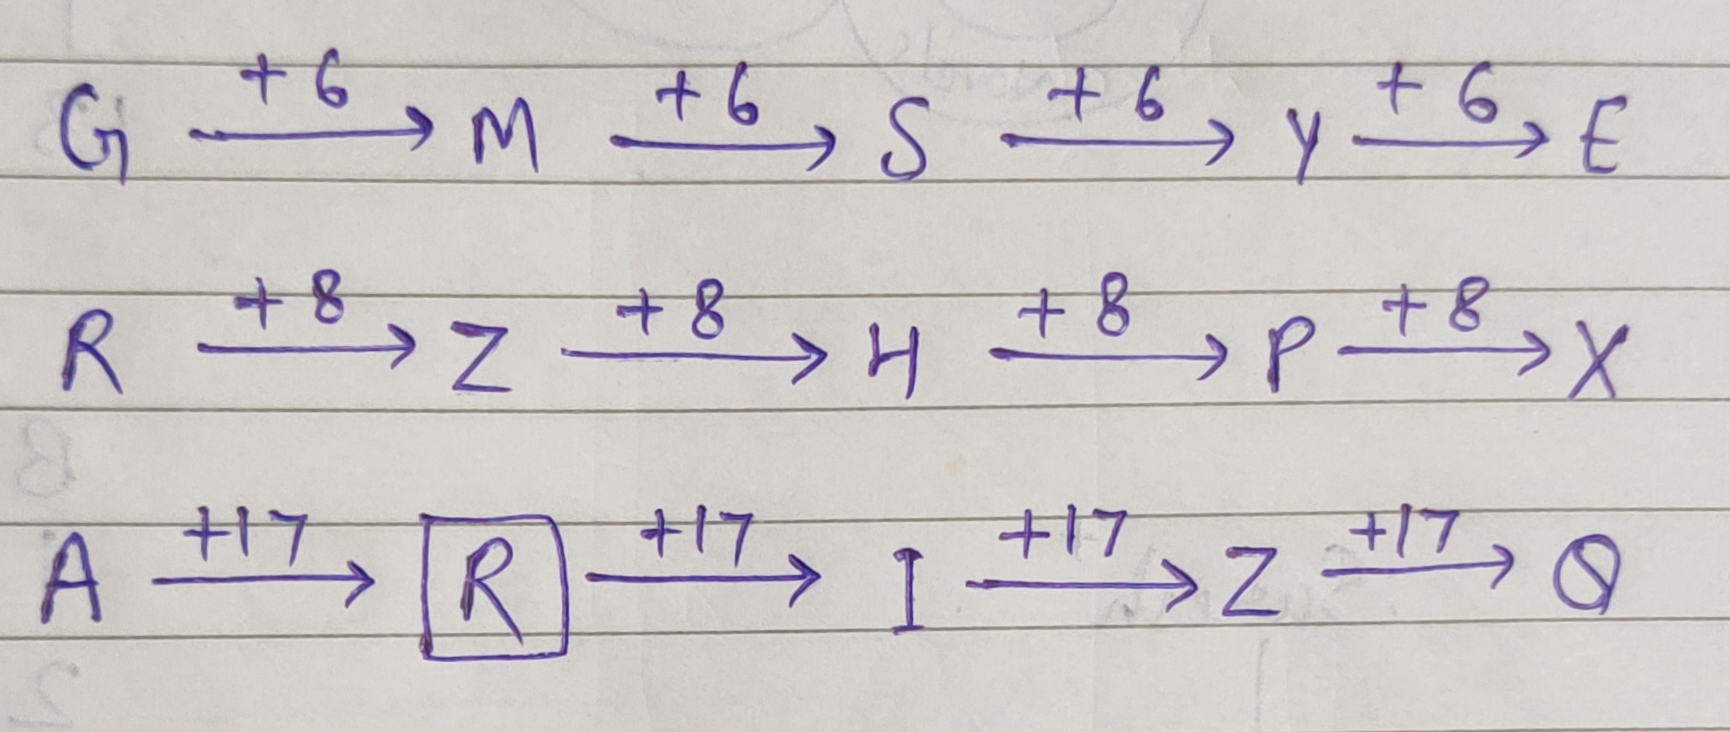 G +6 → M +6 → S +6 → Y +6 → E
R +8 → Z +8 → H +8 → P +8 → X
A +17 → R +17 → I +17 → Z +17 → Q